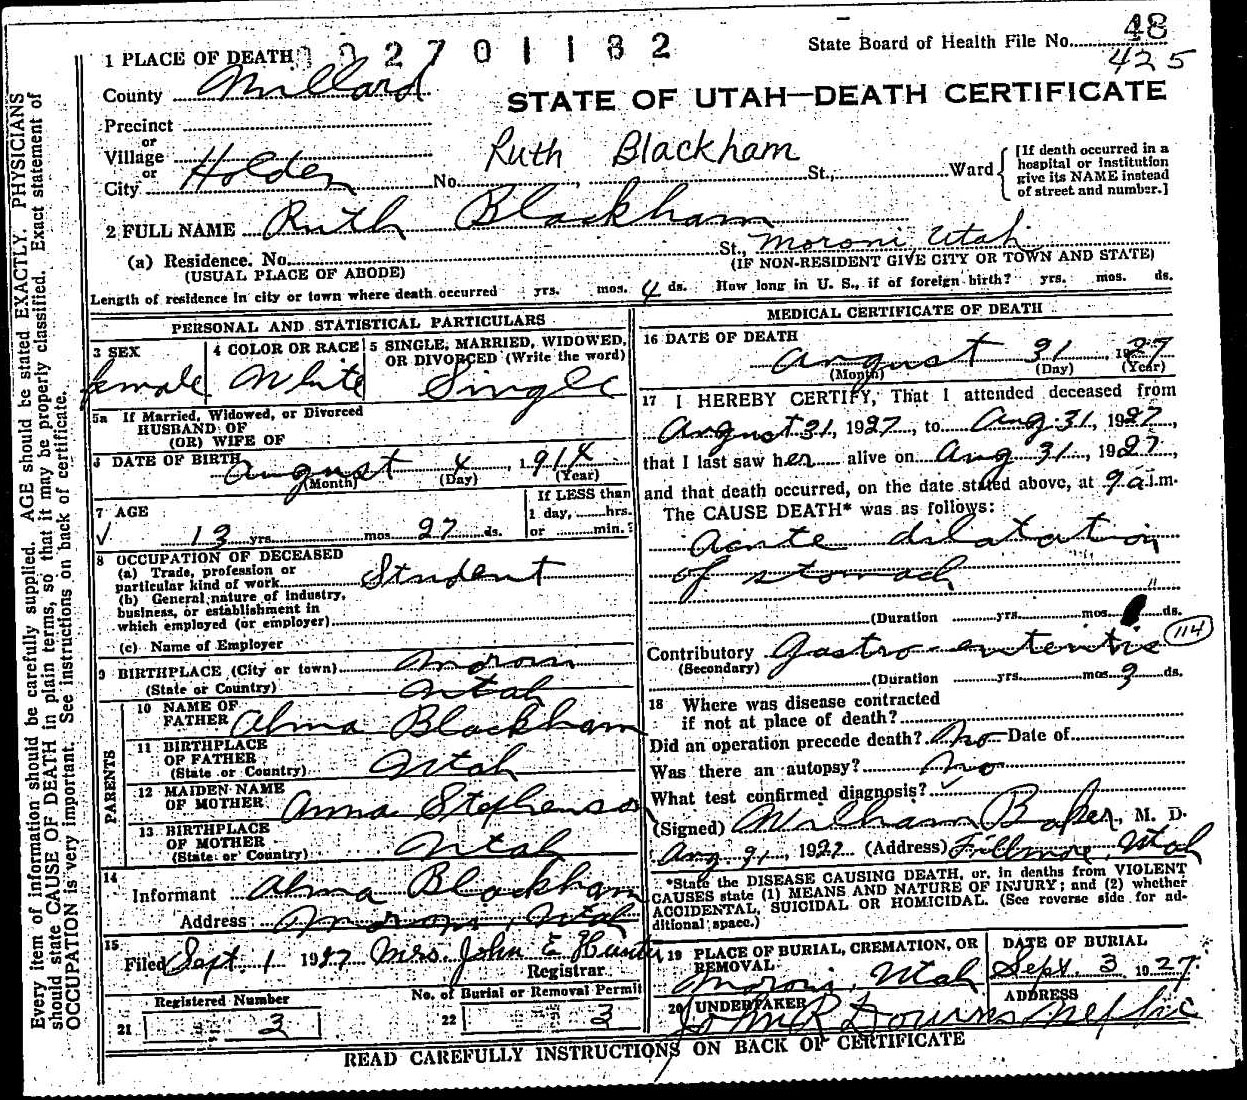 48
425
1 PLACE OF DEATH 2 2 7 0 1 1 8 2 State Board of Health File No.
County Millard
STATE OF UTAH—DEATH CERTIFICATE
Precinct
or
Village
or
City Holden No. Ruth Blackham St., Ward
[If death occurred in a
hospital or institution
give its NAME instead
of street and number.]
2 FULL NAME Ruth Blackham
(a) Residence. No. St., Moroni, Utah
(USUAL PLACE OF ABODE) (IF NON-RESIDENT GIVE CITY OR TOWN AND STATE)
Length of residence in city or town where death occurred yrs. mos. 4 ds. How long in U. S., if of foreign birth? yrs. mos. ds.
PERSONAL AND STATISTICAL PARTICULARS
3 SEX 4 COLOR OR RACE 5 SINGLE, MARRIED, WIDOWED,
OR DIVORCED (Write the word)
female White Single
5a If Married, Widowed, or Divorced
HUSBAND OF
(OR) WIFE OF
6 DATE OF BIRTH August 4, 1914
(Month) (Day) (Year)
7 AGE If LESS than
1 day, hrs.
√ 13 yrs. mos. 27 ds. or min.?
8 OCCUPATION OF DECEASED
(a) Trade, profession or
particular kind of work Student
(b) General nature of industry,
business, or establishment in
which employed (or employer)
(c) Name of Employer
9 BIRTHPLACE (City or town) Moroni
(State or Country) Utah
PARENTS
10 NAME OF
FATHER Alma Blackham
11 BIRTHPLACE
OF FATHER
(State or Country) Utah
12 MAIDEN NAME
OF MOTHER Anna Stephenson
13 BIRTHPLACE
OF MOTHER
(State or Country) Utah
14
Informant Alma Blackham
Address Moroni, Utah
15
Filed Sept 1 1927 Mrs. John E Hunter
Registrar
Registered Number No. of Burial or Removal Permit
21 3 22 3
MEDICAL CERTIFICATE OF DEATH
16 DATE OF DEATH
August 31, 1927
(Month) (Day) (Year)
17 I HEREBY CERTIFY, That I attended deceased from
August 31, 1927, to Aug. 31, 1927,
that I last saw her alive on Aug 31, 1927,
and that death occurred, on the date stated above, at 9 a.m.
The CAUSE DEATH* was as follows:
Acute dilatation
of stomach
(Duration yrs. mos. ds.
Contributory Gastro-enteritis 114
(Secondary)
(Duration yrs. mos. 3 ds.
18 Where was disease contracted
if not at place of death?
Did an operation precede death? No Date of
Was there an autopsy? No
What test confirmed diagnosis?
(Signed) William Baker, M. D.
Aug. 31, 1927 (Address) Fillmore, Utah
*State the DISEASE CAUSING DEATH, or, in deaths from VIOLENT
CAUSES state (1) MEANS AND NATURE OF INJURY; and (2) whether
ACCIDENTAL, SUICIDAL OR HOMICIDAL. (See reverse side for ad-
ditional space.)
19 PLACE OF BURIAL, CREMATION, OR
REMOVAL
Moroni, Utah
DATE OF BURIAL
Sept. 3 1927
20 UNDERTAKER ADDRESS
John R Downs Nephi
READ CAREFULLY INSTRUCTIONS ON BACK OF CERTIFICATE
Every item of information should be carefully supplied. AGE should be stated EXACTLY. PHYSICIANS
should state CAUSE OF DEATH in plain terms, so that it may be properly classified. Exact statement of
OCCUPATION is very important. See instructions on back of certificate.